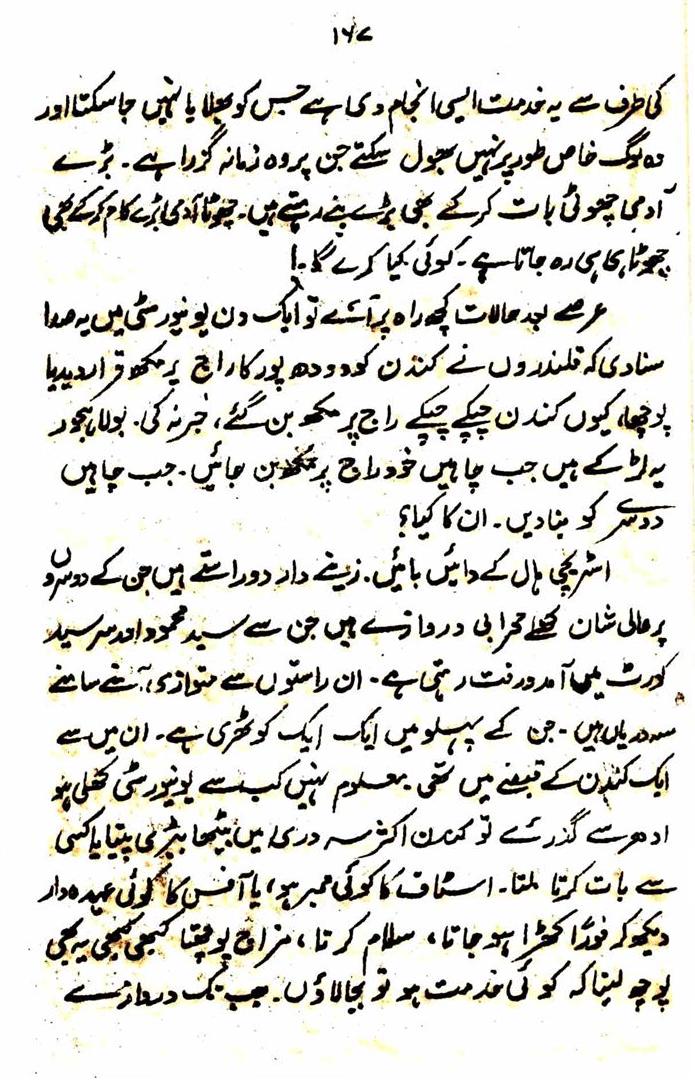 ۱۶۷
کی طرف سے یہ خدمت ایسی انجام دی ہے جس کو بھلایا نہیں جا سکتا اور
وہ لوگ خاص طور پر نہیں بھول سکتے جن پر وہ زمانہ گزرا ہے۔ بڑے
آدمی چھوٹی بات کرکے بھی بڑے بنے رہتے ہیں۔ چھوٹا آدمی بڑے کام کرکے بھی
چھوٹا ہی رہ جاتا ہے۔ کوئی کیا کرے گا۔!
عرصے بعد حالات کچھ راہ پر آئے تو ایک دن یونیورسٹی میں یہ صدا
سنا دی کہ قلندروں نے کندن کو دودھ پور کا راج پرمکھ قرار دیدیا
پوچھا، کیوں کندن چپکے چپکے راج پرمکھ بن گئے، خبر نہ کی۔ بولا، ہجور
یہ لڑکے ہیں جب چاہیں خود راج پرمکھ بن جائیں۔ جب چاہیں
دوسرے کو بنا دیں۔ ان کا کیا؟
اسٹریچی ہال کے دائیں بائیں۔ زینے دار دو راستے ہیں جن کے دو سروں
پر عالی شان کھلے محرابی دروازے ہیں جن سے سید محمود اور سر سید
کورٹ میں آمد و رفت رہتی ہے۔ ان راستوں سے متوازی، آمنے سامنے
سہ دریاں ہیں۔ جن کے پہلو میں ایک ایک کوٹھری ہے۔ ان میں سے
ایک کندن کے قبضے میں تھی۔ معلوم نہیں کب سے یونیورسٹی کھلی ہو
ادھر سے گذرئے تو کندن اکثر سہ دری میں بیٹھا بیڑی پیتا یا کسی
سے بات کرتا ملتا۔ اسٹاف کا کوئی ممبر ہو، یا آفس کا کوئی عہدہ دار
دیکھ کر فوراً کھڑا ہو جاتا، سلام کرتا، مزاج پوچھتا کبھی کبھی یہ بھی
پوچھ لیتا کہ کوئی خدمت ہو تو بجا لاؤں۔ جب تک دروازے